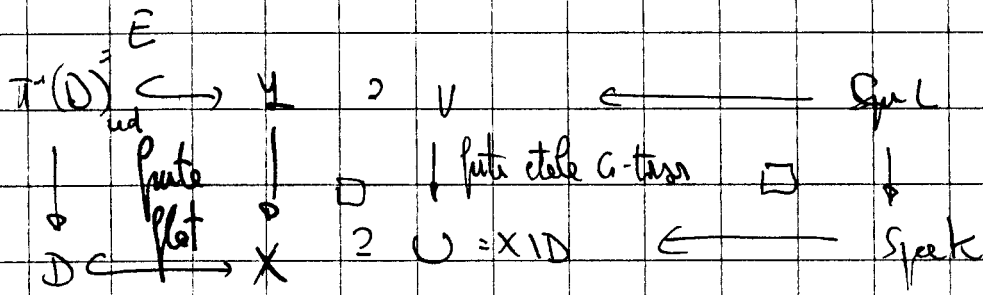 E
π⁻¹(D)red = ↪ Y ⊇ V ← Spec L
↓ finite flat ↓ □ ↓ finite etale G-torsor □ ↓
D ↪ X ⊇ U = X\D ← Spec K